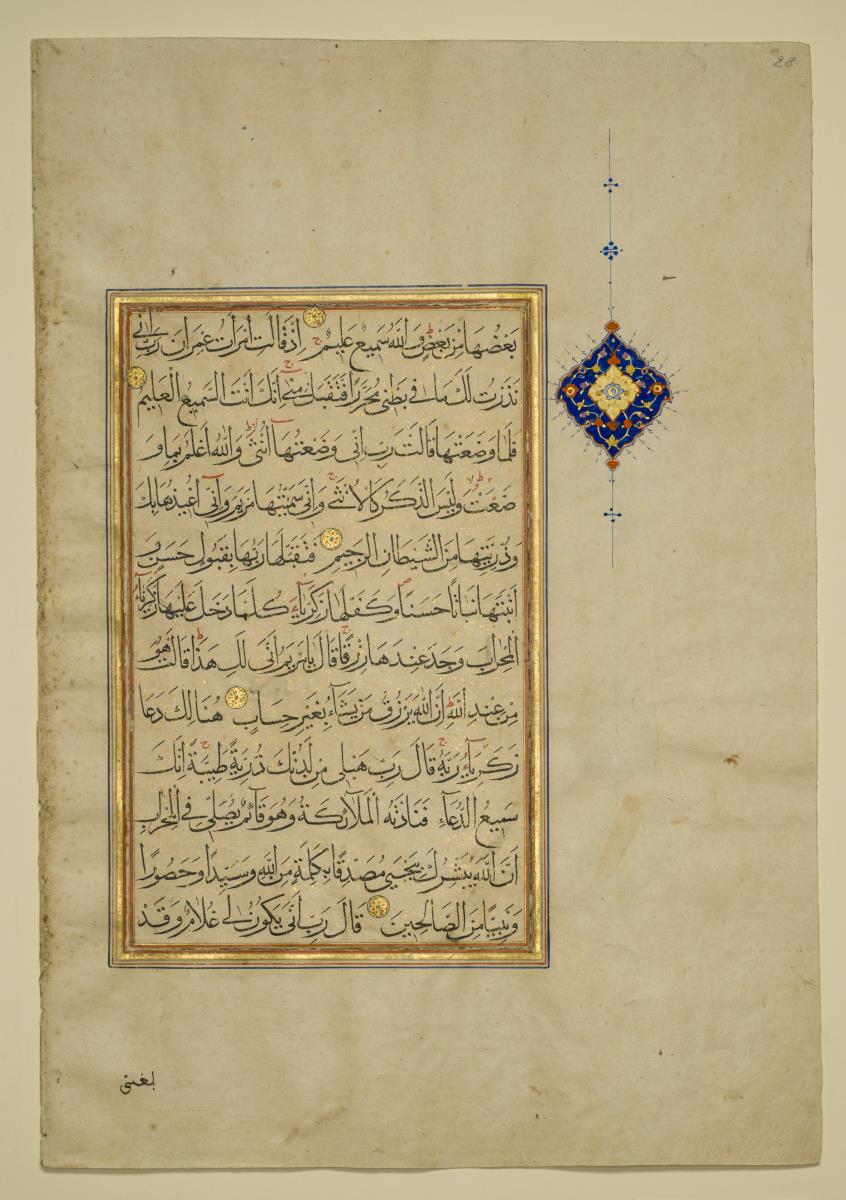 28
بَعْضُهَا مِنْ بَعْضٍ وَاللّٰهُ سَمِيعٌ عَلِيمٌ إِذْ قَالَتِ امْرَأَتُ عِمْرَانَ رَبِّ إِنِّي
نَذَرْتُ لَكَ مَا فِي بَطْنِي مُحَرَّرًا فَتَقَبَّلْ مِنِّي إِنَّكَ أَنْتَ السَّمِيعُ الْعَلِيمُ
فَلَمَّا وَضَعَتْهَا قَالَتْ رَبِّ إِنِّي وَضَعْتُهَا أُنْثَى وَاللّٰهُ أَعْلَمُ بِمَا وَ
ضَعَتْ وَلَيْسَ الذَّكَرُ كَالْأُنْثَى وَإِنِّي سَمَّيْتُهَا مَرْيَمَ وَإِنِّي أُعِيذُهَا بِكَ
وَذُرِّيَّتَهَا مِنَ الشَّيْطَانِ الرَّجِيمِ فَتَقَبَّلَهَا رَبُّهَا بِقَبُولٍ حَسَنٍ وَ
أَنْبَتَهَا نَبَاتًا حَسَنًا وَكَفَّلَهَا زَكَرِيَّاءَ كُلَّمَا دَخَلَ عَلَيْهَا زَكَرِيَّاءُ
الْمِحْرَابَ وَجَدَ عِنْدَهَا رِزْقًا قَالَ يَا مَرْيَمُ أَنَّى لَكِ هَذَا قَالَتْ هُوَ
مِنْ عِنْدِ اللّٰهِ إِنَّ اللّٰهَ يَرْزُقُ مَنْ يَشَاءُ بِغَيْرِ حِسَابٍ هُنَالِكَ دَعَا
زَكَرِيَّاءُ رَبَّهُ قَالَ رَبِّ هَبْ لِي مِنْ لَدُنْكَ ذُرِّيَّةً طَيِّبَةً إِنَّكَ
سَمِيعُ الدُّعَاءِ فَنَادَتْهُ الْمَلَائِكَةُ وَهُوَ قَائِمٌ يُصَلِّي فِي الْمِحْرَابِ
أَنَّ اللّٰهَ يُبَشِّرُكَ بِيَحْيَى مُصَدِّقًا بِكَلِمَةٍ مِنَ اللّٰهِ وَسَيِّدًا وَحَصُورًا
وَنَبِيًّا مِنَ الصَّالِحِينَ قَالَ رَبِّ أَنَّى يَكُونُ لِي غُلَامٌ وَقَدْ
بلغنى